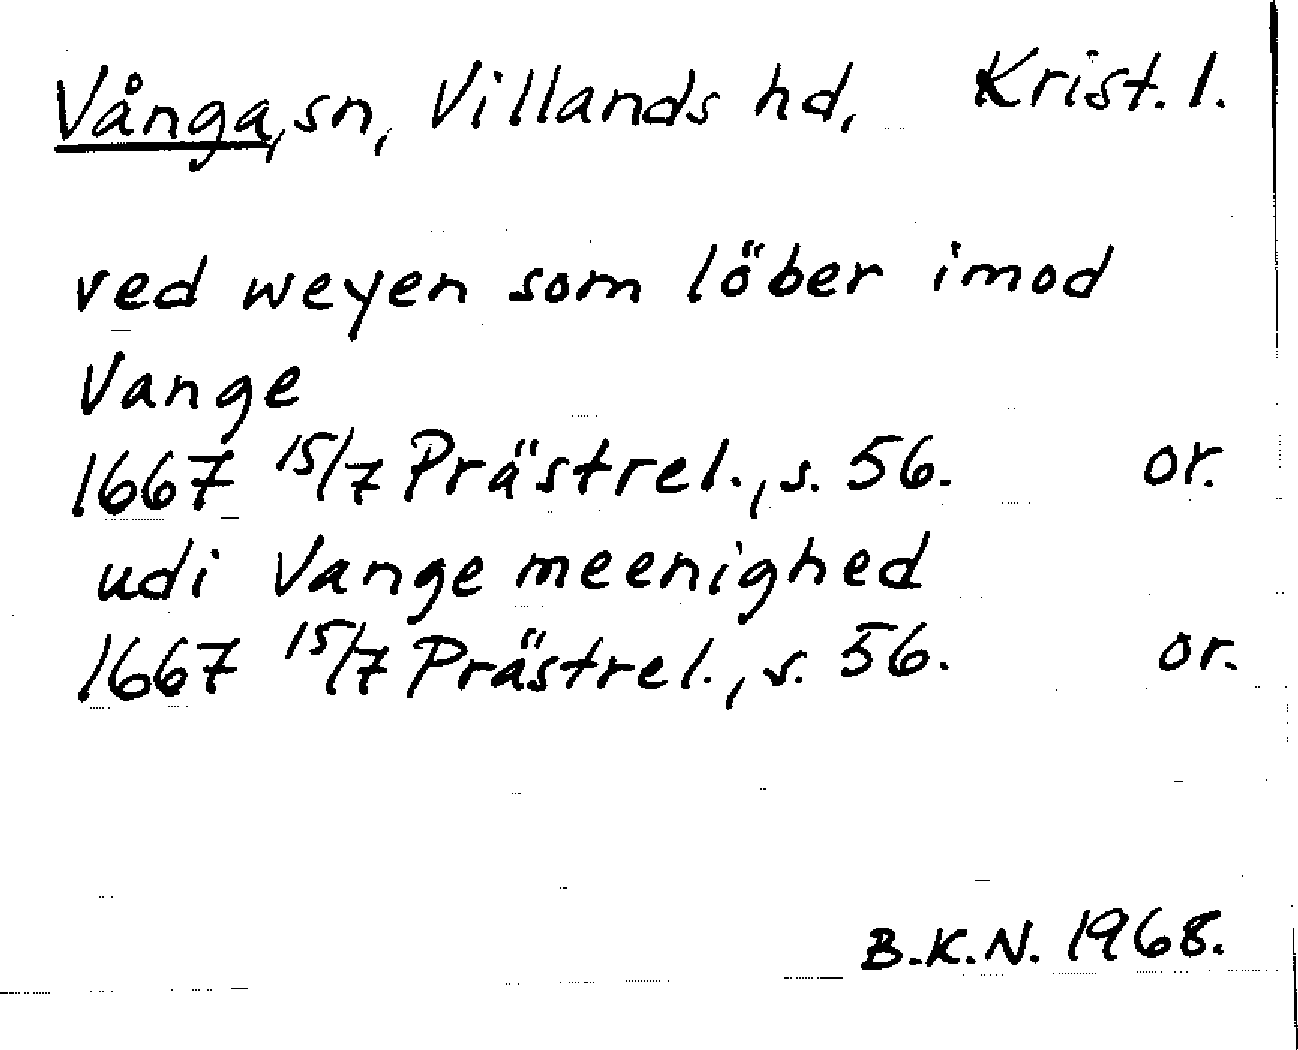 Vånga, sn, Villands hd, Krist. l.
ved weyen som löber imod
Vange
1667 15/7 Prästrel., s. 56. or.
udi Vange meenighed
1667 15/7 Prästrel., s. 56. or.
B.K.N. 1968.